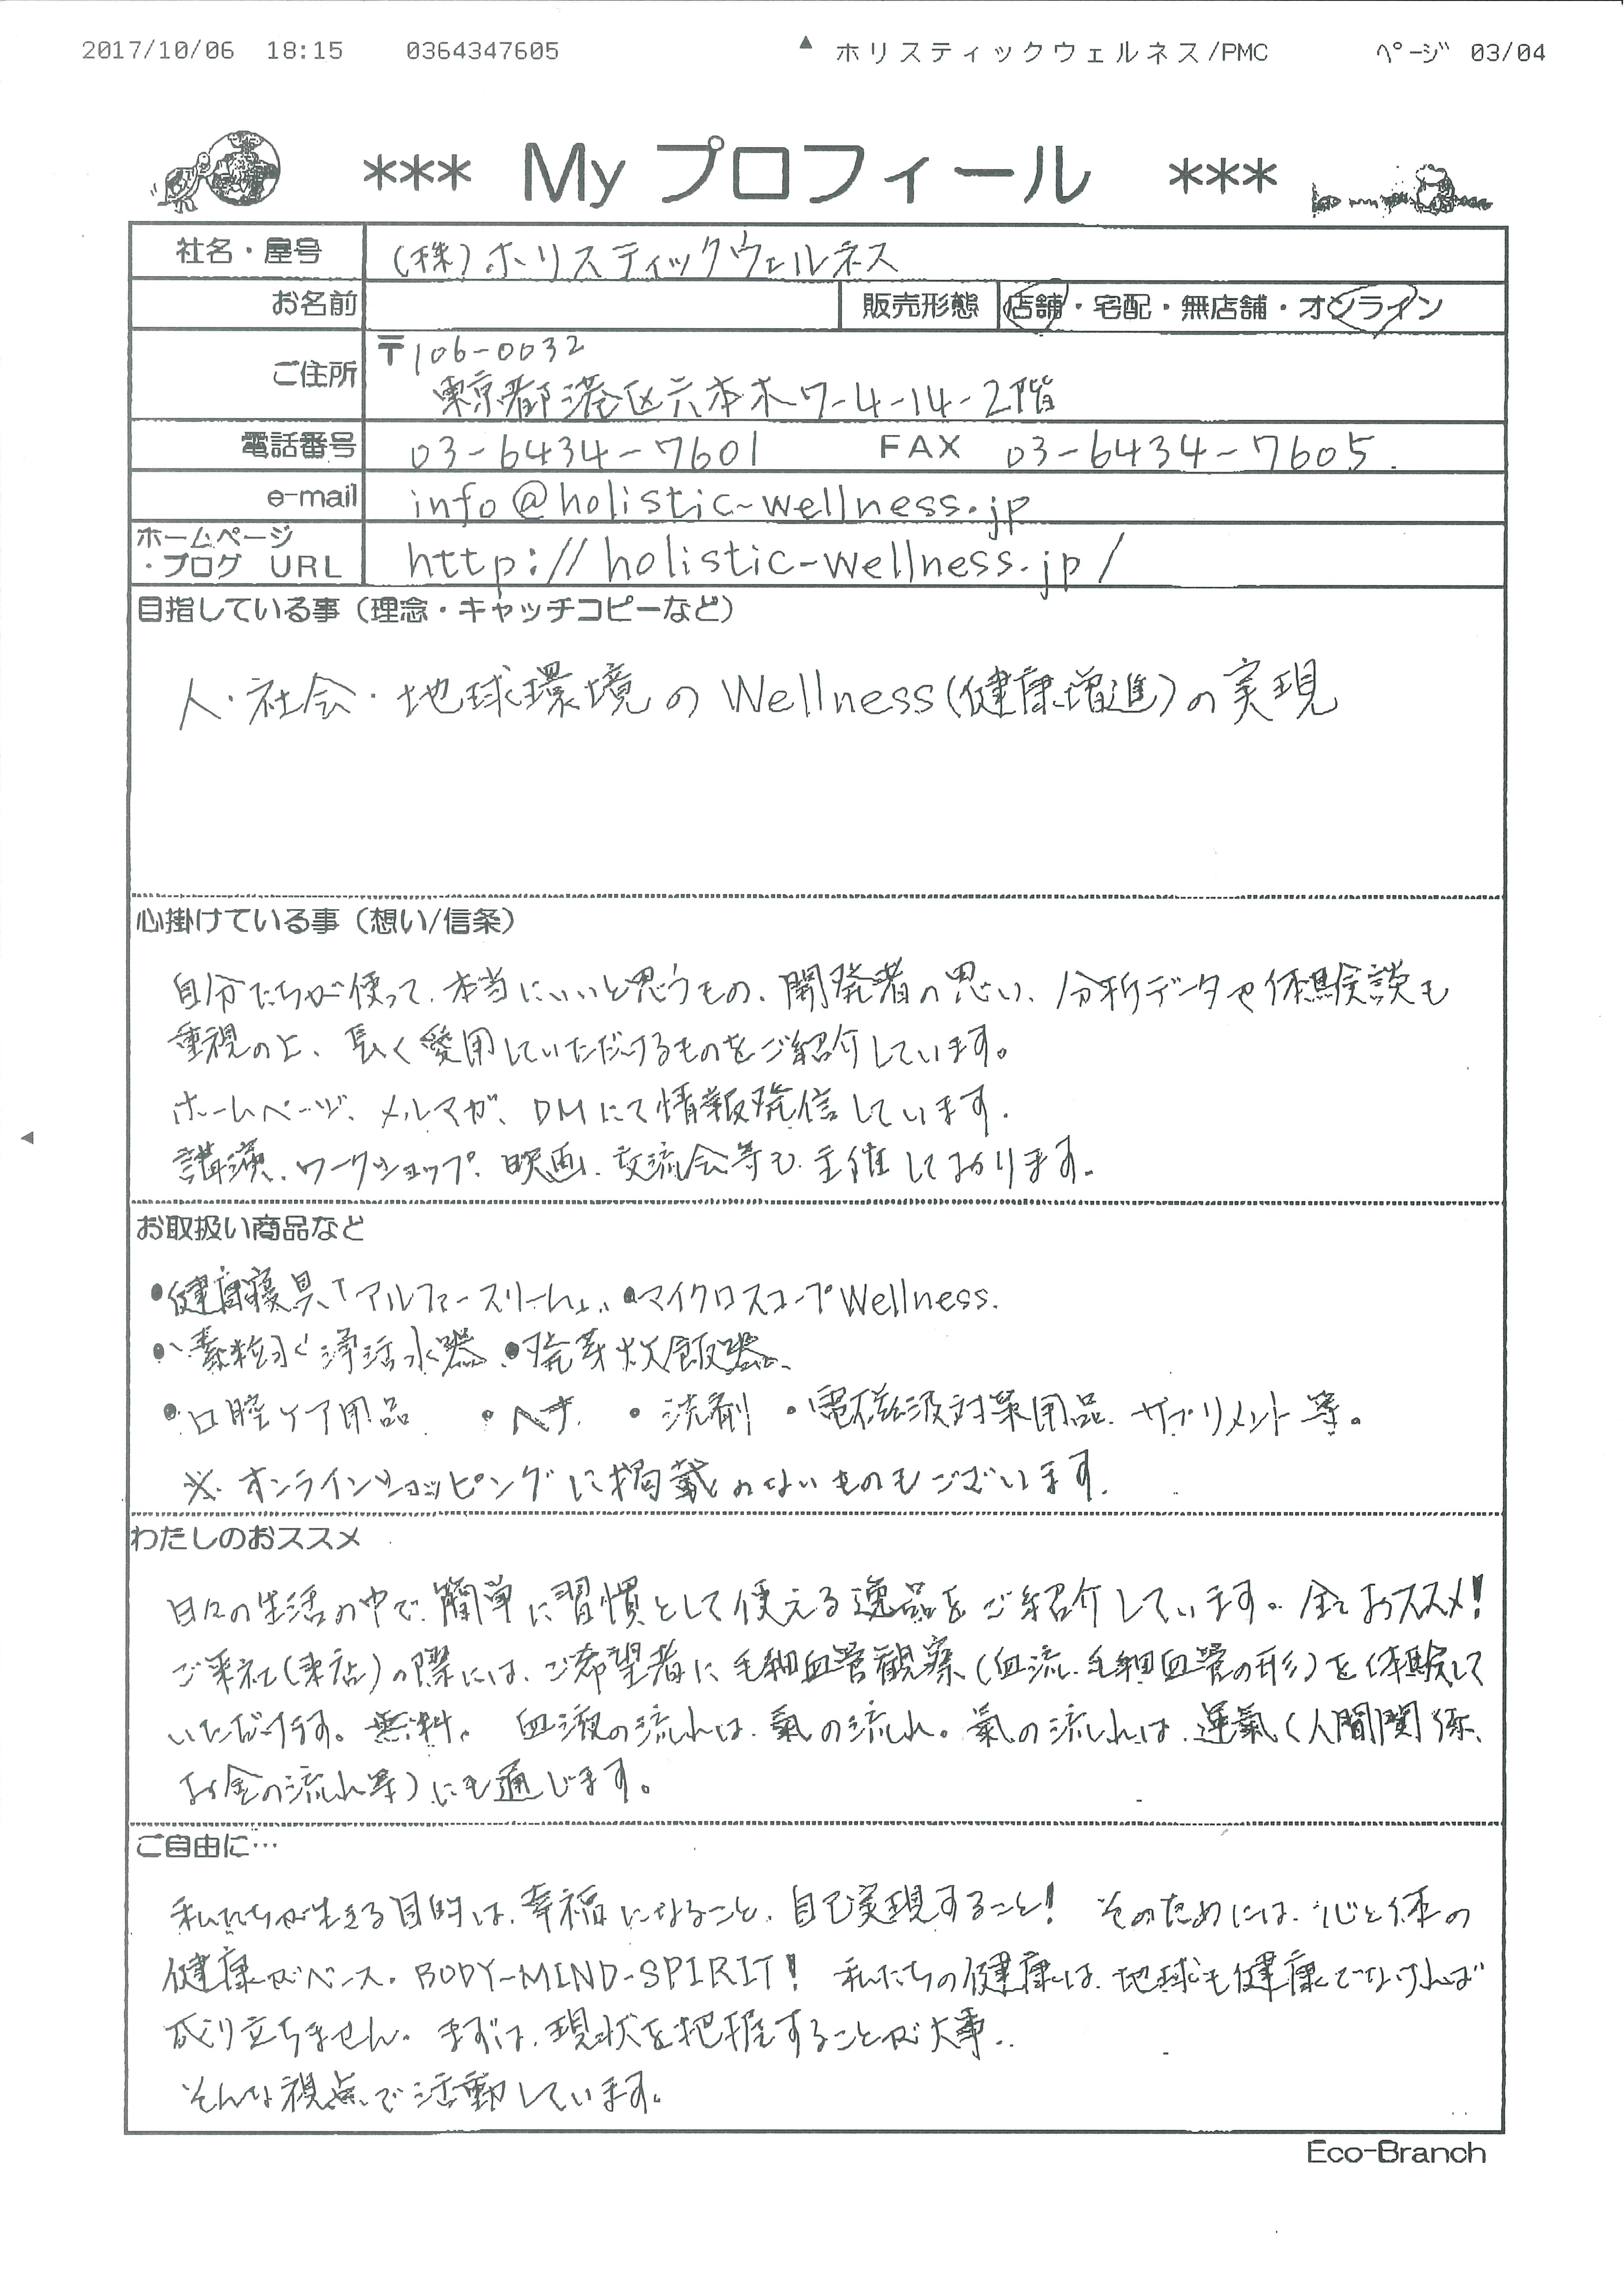 2017/10/06 18:15 0364347605 ▲ ホリスティックウェルネス/PMC ﾍﾟｰｼﾞ 03/04
*** My プロフィール ***
社名・屋号 (株)ホリスティックウェルネス
お名前 販売形態 店舗・宅配・無店舗・オンライン
ご住所 〒106-0032
東京都港区六本木7-4-14-2階
電話番号 03-6434-7601 FAX 03-6434-7605.
e-mail info@holistic-wellness.jp
ホームページ
・ブログ URL http://holistic-wellness.jp/
目指している事（理念・キャッチコピーなど）
人・社会・地球環境のWellness(健康増進)の実現
心掛けている事（想い/信条）
自分たちが使って、本当にいいと思うもの、開発者の思い、分析データや体験談も
重視の上、長く愛用していただけるものをご紹介しています。
ホームページ、メルマガ、DMにて情報発信しています。
講演、ワークショップ、映画、交流会等も主催しております。
お取扱い商品など
●健康寝具「アルファースリープ」、●マイクロスコープWellness.
●素粒水 浄活水器 ●発芽炊飯器、
●口腔ケア用品 ・ヘナ ・洗剤 ・電磁波対策用品、サプリメント等。
※オンラインショッピングに掲載のないものもございます。
わたしのおススメ
日々の生活の中で、簡単に習慣として使える逸品をご紹介しています。全ておススメ!
ご来社(来店)の際には、ご希望者に毛細血管観察(血流、毛細血管の形)を体験して
いただけます。無料。 血液の流れは、氣の流れ。氣の流れは、運氣(人間関係、
お金の流れ等)にも通じます。
ご自由に…
私たちが生きる目的は、幸福になること、自己実現すること! そのためには、心と体の
健康がベース。BODY-MIND-SPIRIT! 私たちの健康は、地球も健康でなければ
成り立ちません。まずは、現状を把握することが大事..
そんな視点で活動しています。
Eco-Branch